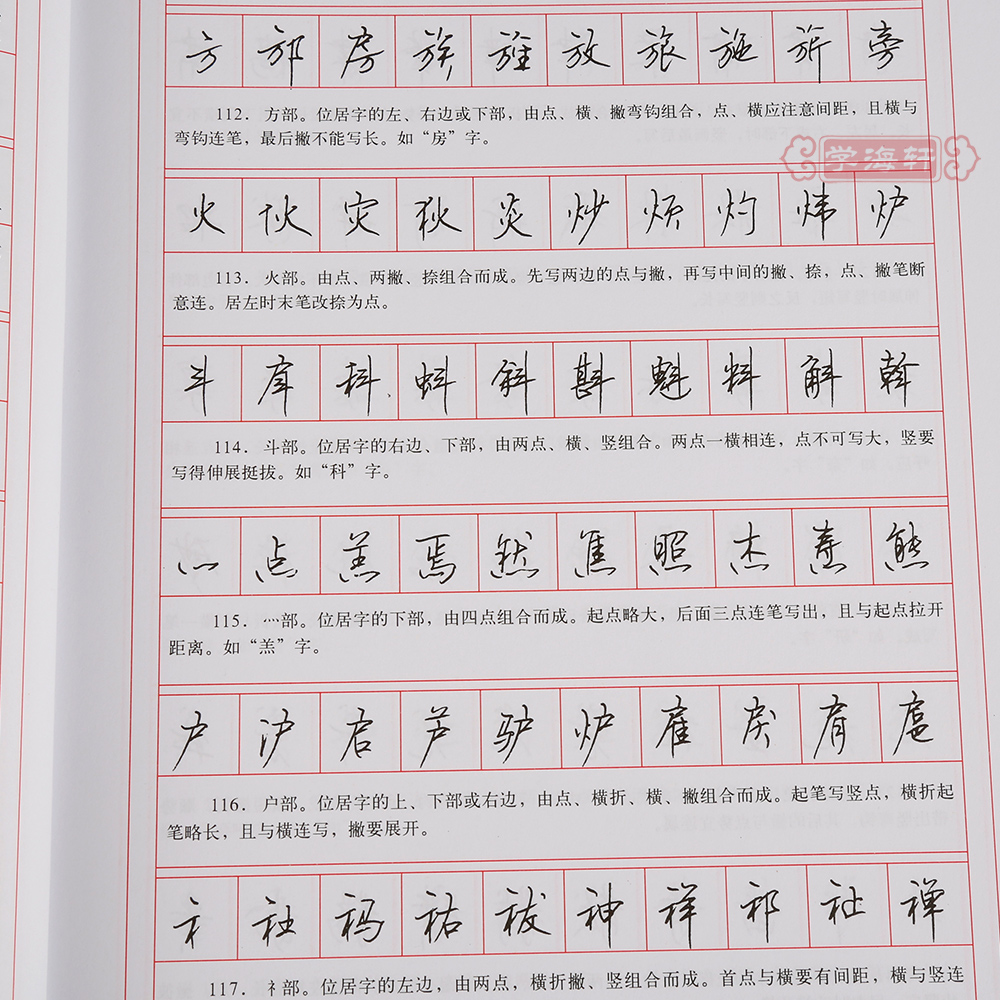 方 邡 房 族 旌 放 旅 施 旂 旁
112. 方部。位居字的左、右边或下部，由点、横、撇弯钩组合，点、横应注意间距，且横与
弯钩连笔，最后撇不能写长。如“房”字。
学海轩
火 伙 灾 狄 炎 炒 烦 灼 炜 炉
113. 火部。由点、两撇、捺组合而成。先写两边的点与撇，再写中间的撇、捺，点、撇笔断
意连。居左时末笔改捺为点。
斗 戽 科 蚪 斜 斟 魁 料 斛 斡
114. 斗部。位居字的右边、下部，由两点、横、竖组合。两点一横相连，点不可写大，竖要
写得伸展挺拔。如“科”字。
灬 点 羔 焉 然 焦 照 杰 焘 熊
115. 灬部。位居字的下部，由四点组合而成。起点略大，后面三点连笔写出，且与起点拉开
距离。如“羔”字。
户 沪 启 芦 驴 炉 雇 戾 肩 扈
116. 户部。位居字的上、下部或右边，由点、横折、横、撇组合而成。起笔写竖点，横折起
笔略长，且与横连写，撇要展开。
礻 社 祃 祜 祓 神 祥 祁 祉 禅
117. 礻部。位居字的左边，由两点，横折撇、竖组合而成。首点与横要有间距，横与竖连